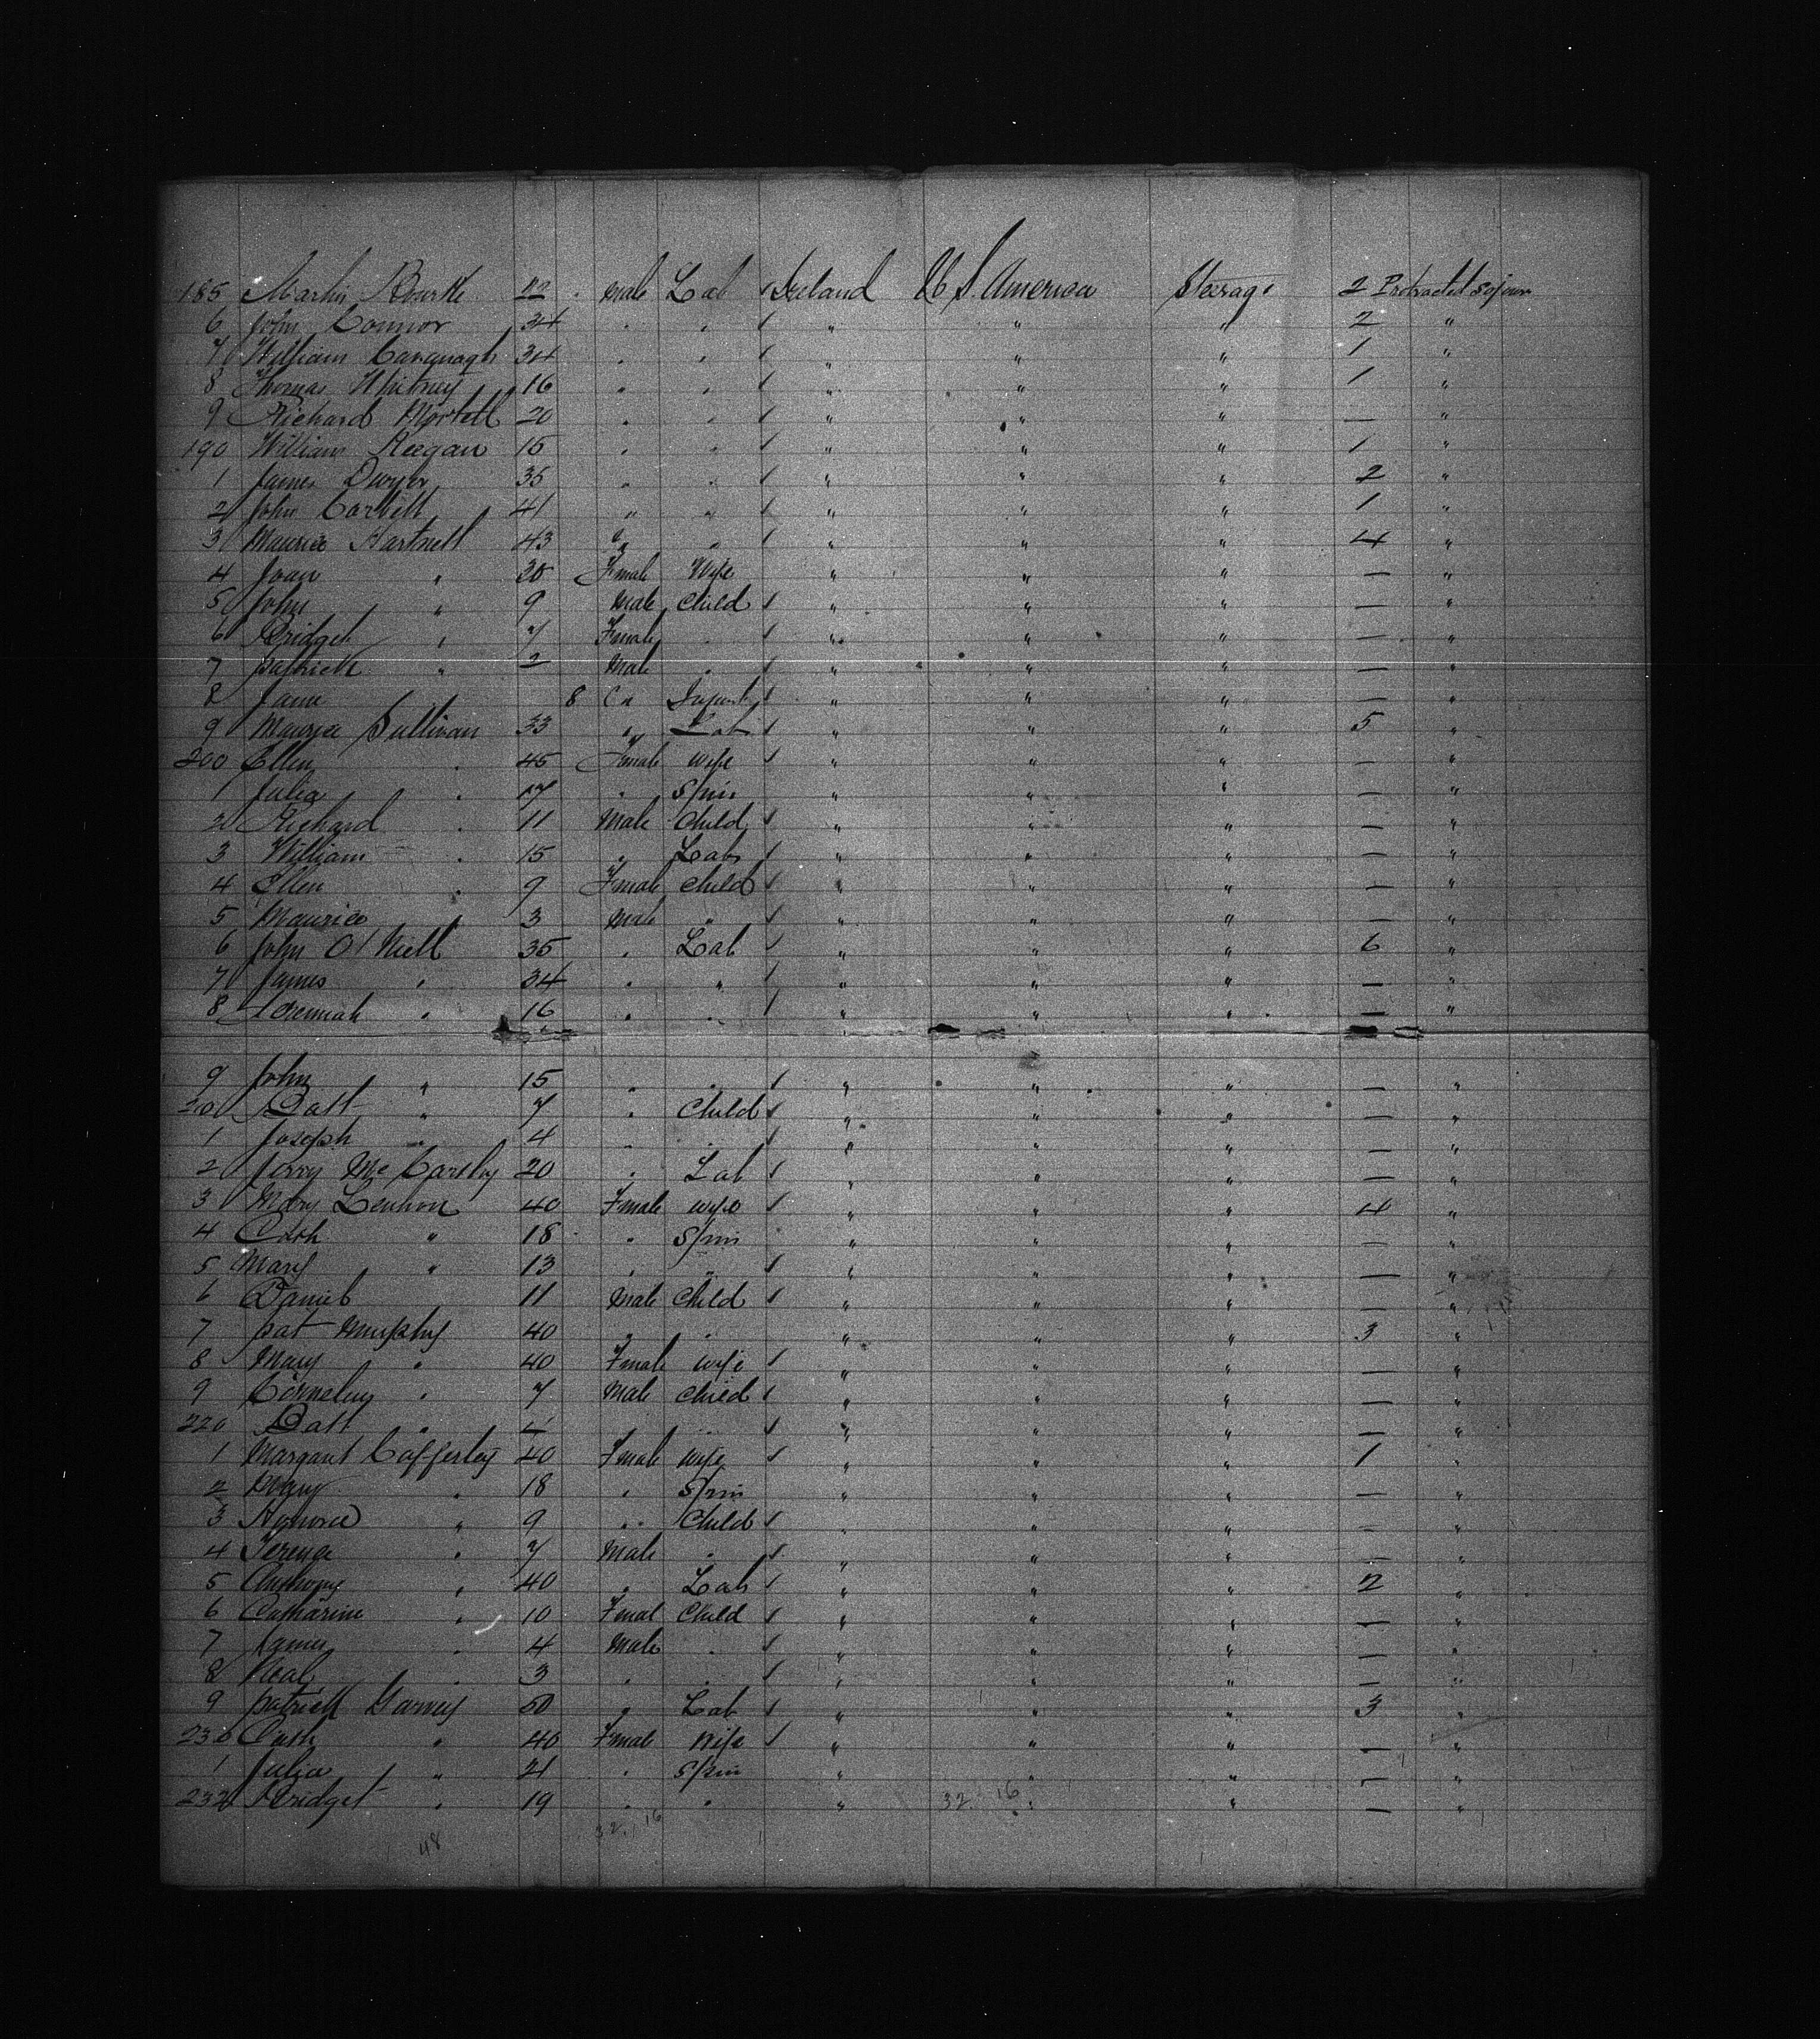 185 Martin Bourke 22 Male Lab Ireland U S. America Steerage 2 Protracted Sojour
6 John Connor 34 " " " " " 2 "
7 William Cavanagh 34 " " " " " 1 "
8 Thomas Whitney 16 " " " " " 1 "
9 Richard Mortell 20 " " " " " — "
190 William Reegan 15 " " " " " 1 "
1 James Dwyer 35 " " " " " 2 "
2 John Corbett 41 " " " " " 1 "
3 Maurice Hartnett 43 " " " " " 4 "
4 Joan " 30 Female Wife " " " — "
5 John " 9 Male Child " " " — "
6 Bridget " 7 Female " " " " — "
7 Patrick " 2 Male " " " " — "
8 Jane 8 Infant " " " — "
9 Maurice Sullivan 33 " Lab " " " 5 "
200 Ellen " 45 Female Wife " " " — "
1 Julia " 17 " Spin " " " — "
2 Richard " 11 Male Child " " " — "
3 William " 15 " Lab " " " — "
4 Ellen " 9 Female Child " " " — "
5 Maurice " 3 Male " " " " — "
6 John O'Niell 35 " Lab " " " 6 "
7 James " 34 " " " " " — "
8 Jeremiah " 16 " " " " " — "
9 John " 15 " " " " " — "
210 Batt " 7 " Child " " " — "
1 Joseph " 4 " " " " " — "
2 Jerry McCarthy 20 " Lab " " " — "
3 Mary Lenhon 40 Female Wife " " " 4 "
4 Cath " 18 " Spin " " " — "
5 Mary " 13 " " " " " — "
6 Daniel 11 Male Child " " " — "
7 Pat Murphy 40 " " " " " 3 "
8 Mary " 40 Female Wife " " " — "
9 Cornelius " 7 Male Child " " " — "
220 Batt " " " " " " — "
1 Margaret Cafferley 40 Female Wife " " " 1 "
2 Mary " 18 " Spin " " " — "
3 Honora " 9 " Child " " " — "
4 Terence " 7 Male " " " " — "
5 Anthony " 40 " Lab " " " 2 "
6 Catharine " 10 Femal Child " " " — "
7 James " 4 Male " " " " — "
8 Neal " 3 " " " " " — "
9 Patrick Garvey 50 " Lab " " " 3 "
230 Cath " 40 Female Wife " " " — "
1 Julia " 21 " Spin " " " — "
232 Bridget " 19 " " " " " — "
32 16
32 16
48